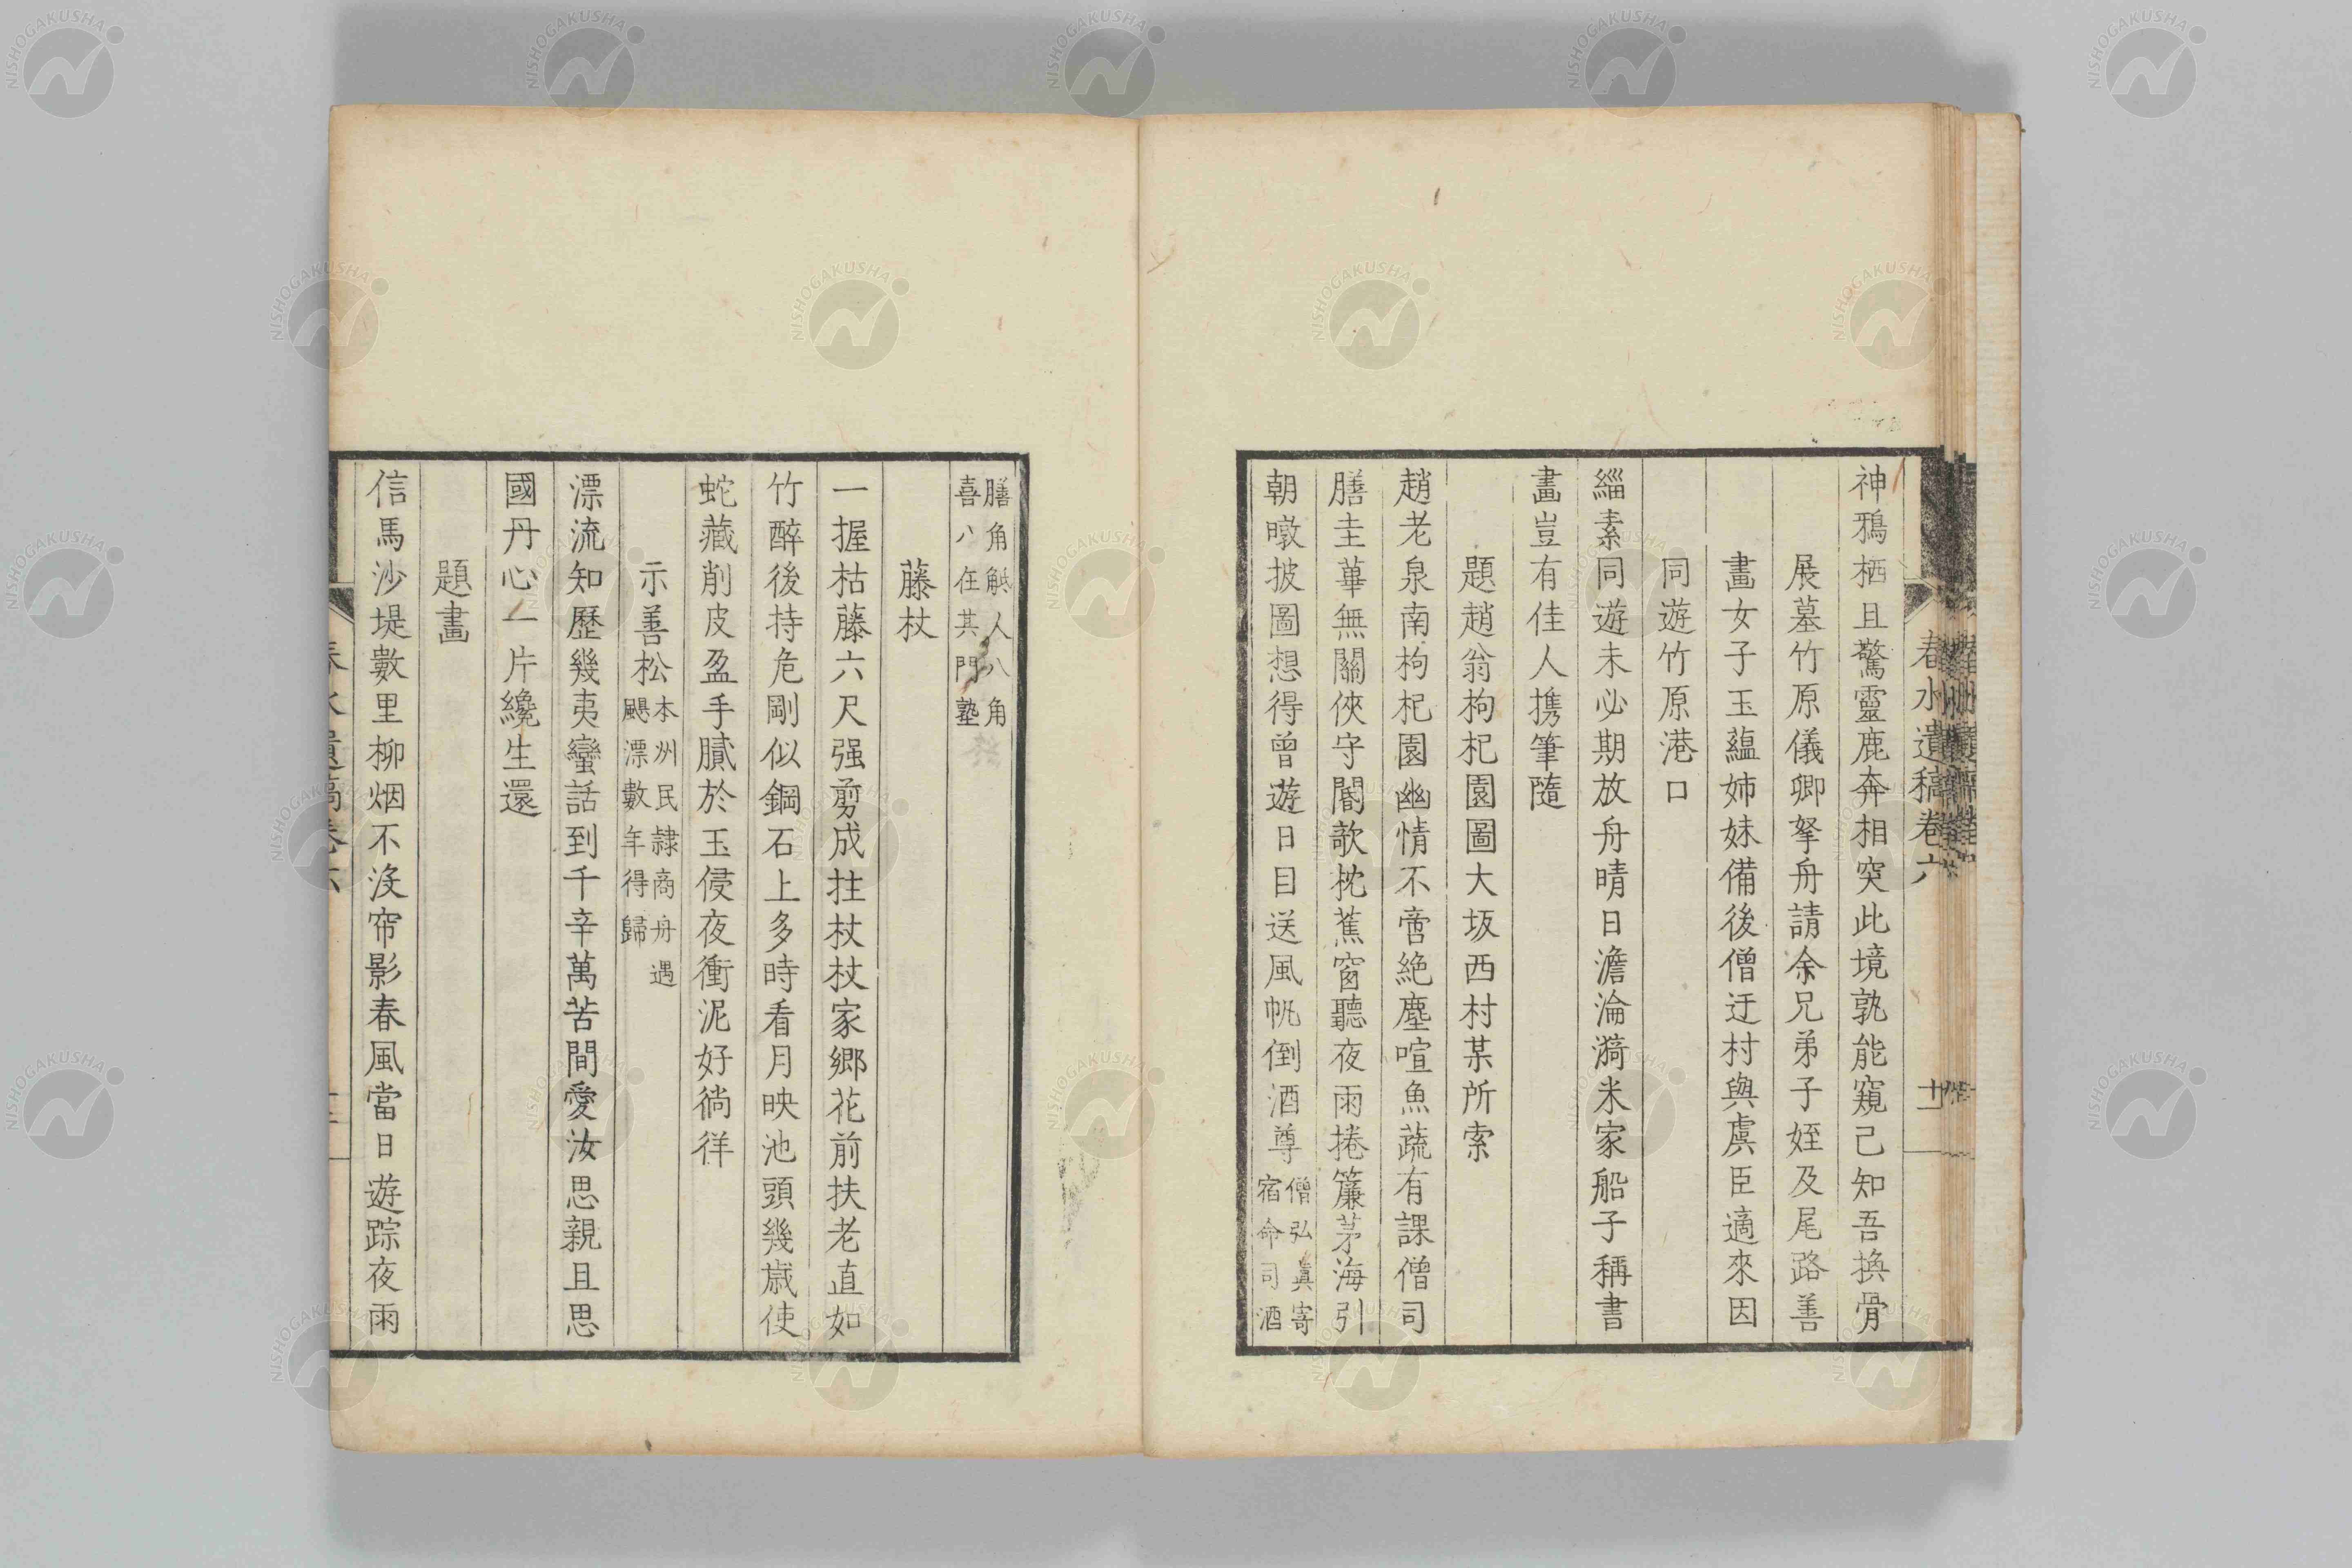 春水遺稿卷六
十一
神鴉栖且驚靈鹿奔相突此境孰能窺己知吾換骨
展墓竹原儀卿拏舟請余兄弟子姪及尾路善
畫女子玉蘊姉妹備後僧迂村與虞臣適來因
同遊竹原港口
緇素同遊未必期放舟晴日澹淪漪米家船子稱書
畫豈有佳人携筆隨
題趙翁枸杞園圖大坂西村某所索
趙老泉南枸杞園幽情不啻絶塵喧魚蔬有課僧司
膳圭蓽無關俠守閽欹枕蕉窗聽夜雨捲簾茅海引
朝暾披圖想得曾遊日目送風帆倒酒尊
僧弘眞寄
宿命司酒
膳角觝人八角
喜八住其門塾
藤杖
一握枯藤六尺强剪成拄杖杖家郷花前扶老直如
竹醉後持危剛似鋼石上多時看月映池頭幾嵗使
蛇藏削皮盈手膩於玉侵夜衝泥好徜徉
示善松
本州民隷商舟遇
颶漂數年得歸
漂流知歷幾夷蠻話到千辛萬苦間愛汝思親且思
國丹心一片纔生還
題畫
信馬沙堤數里柳烟不没帘影春風當日遊踪夜雨
春水遺稿卷六
NISHOGAKUSHA